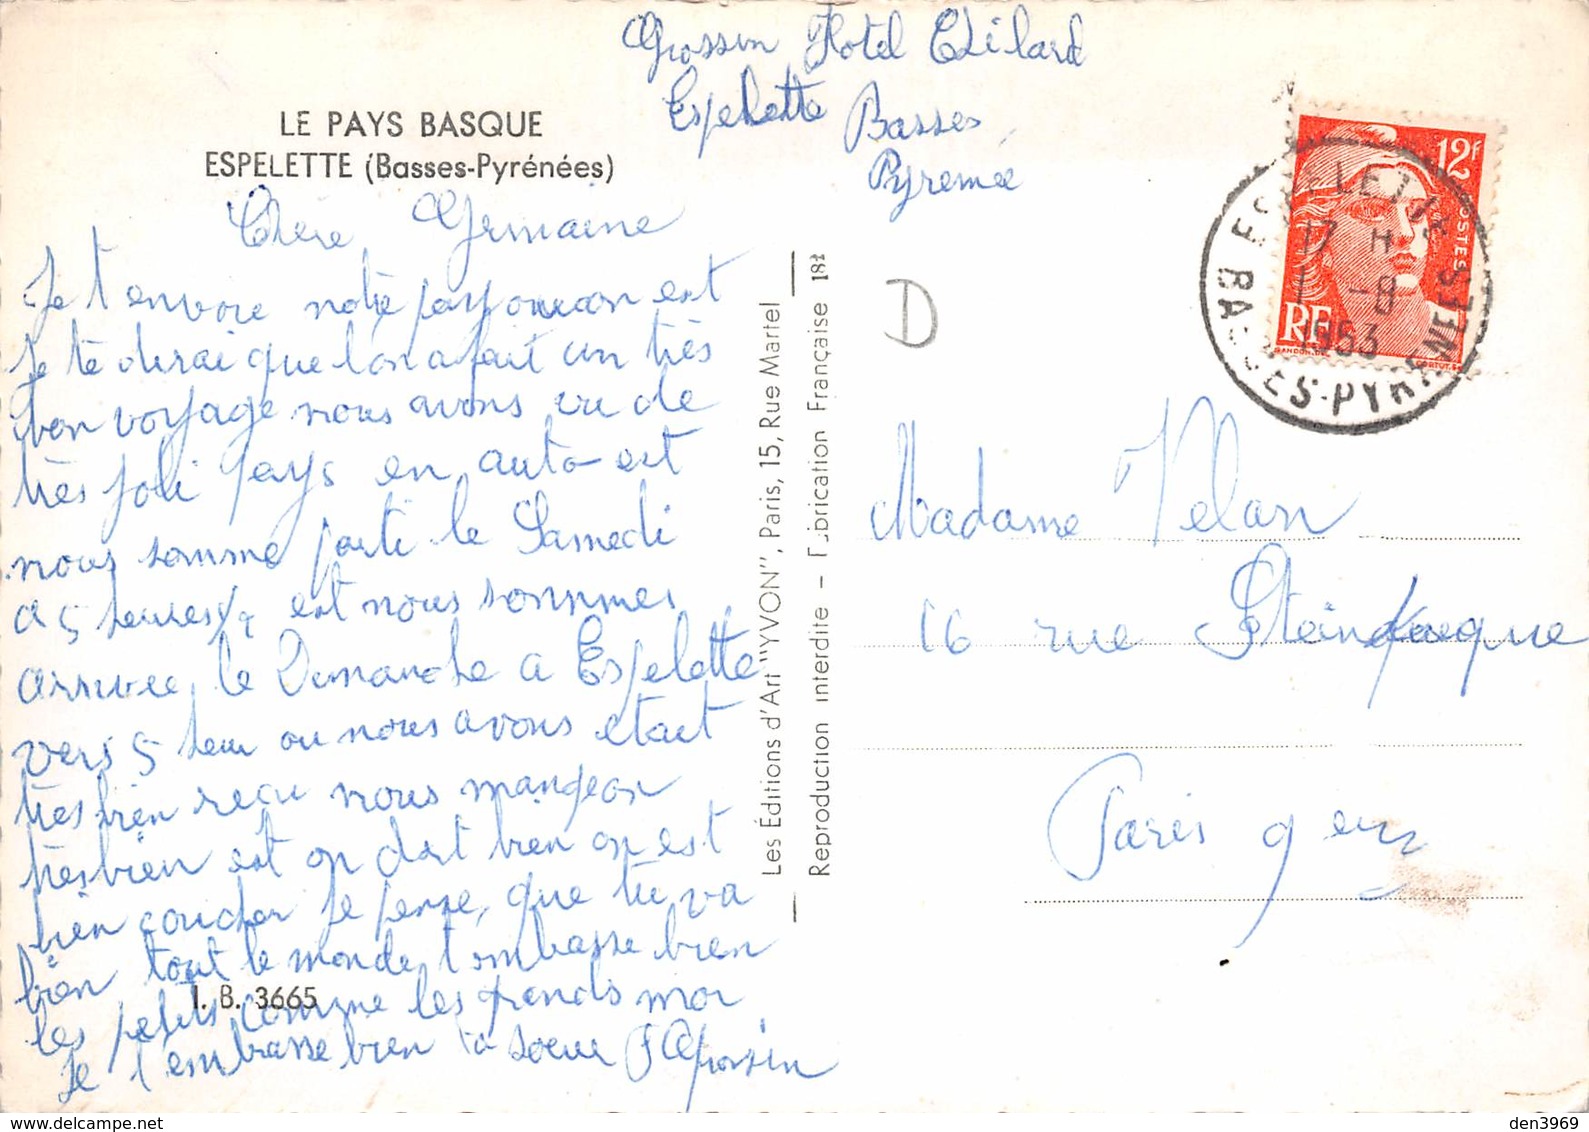 Grossin Hotel
Espelette Basses
Pyrenée
LE PAYS BASQUE
ESPELETTE (Basses-Pyrénées)
Chère Germaine
Je t'envoie notre est
Je te dirai que l'on a fait un très
bon voyage nous avons vu de
très joli pays en auto est
nous somme parti le Samedi
a 5 heures ½ est nous sommes
arrivée le Dimanche a Espelette
vers 5 heur ou nous avons etait
tres bien recu nous mangeon
tres bien est on dort bien on est
bien coucher Je pense, que tu va
bien tout le monde t'embasse bien
les petits comme les grands moi
Je t'embrasse bien ta soeur Grossin
I. B. 3665
Les Éditions d'Art "YVON", Paris, 15, Rue Martel
Reproduction interdite – Fabrication Française
D
12f
POSTES
RF
GANDON.DEL
CORTOT.SC
ESPELETTE
17 H
1 -8
1953
BASSES-PYRENEES
Madame Velan
16 rue
Paris 9 em
den3969